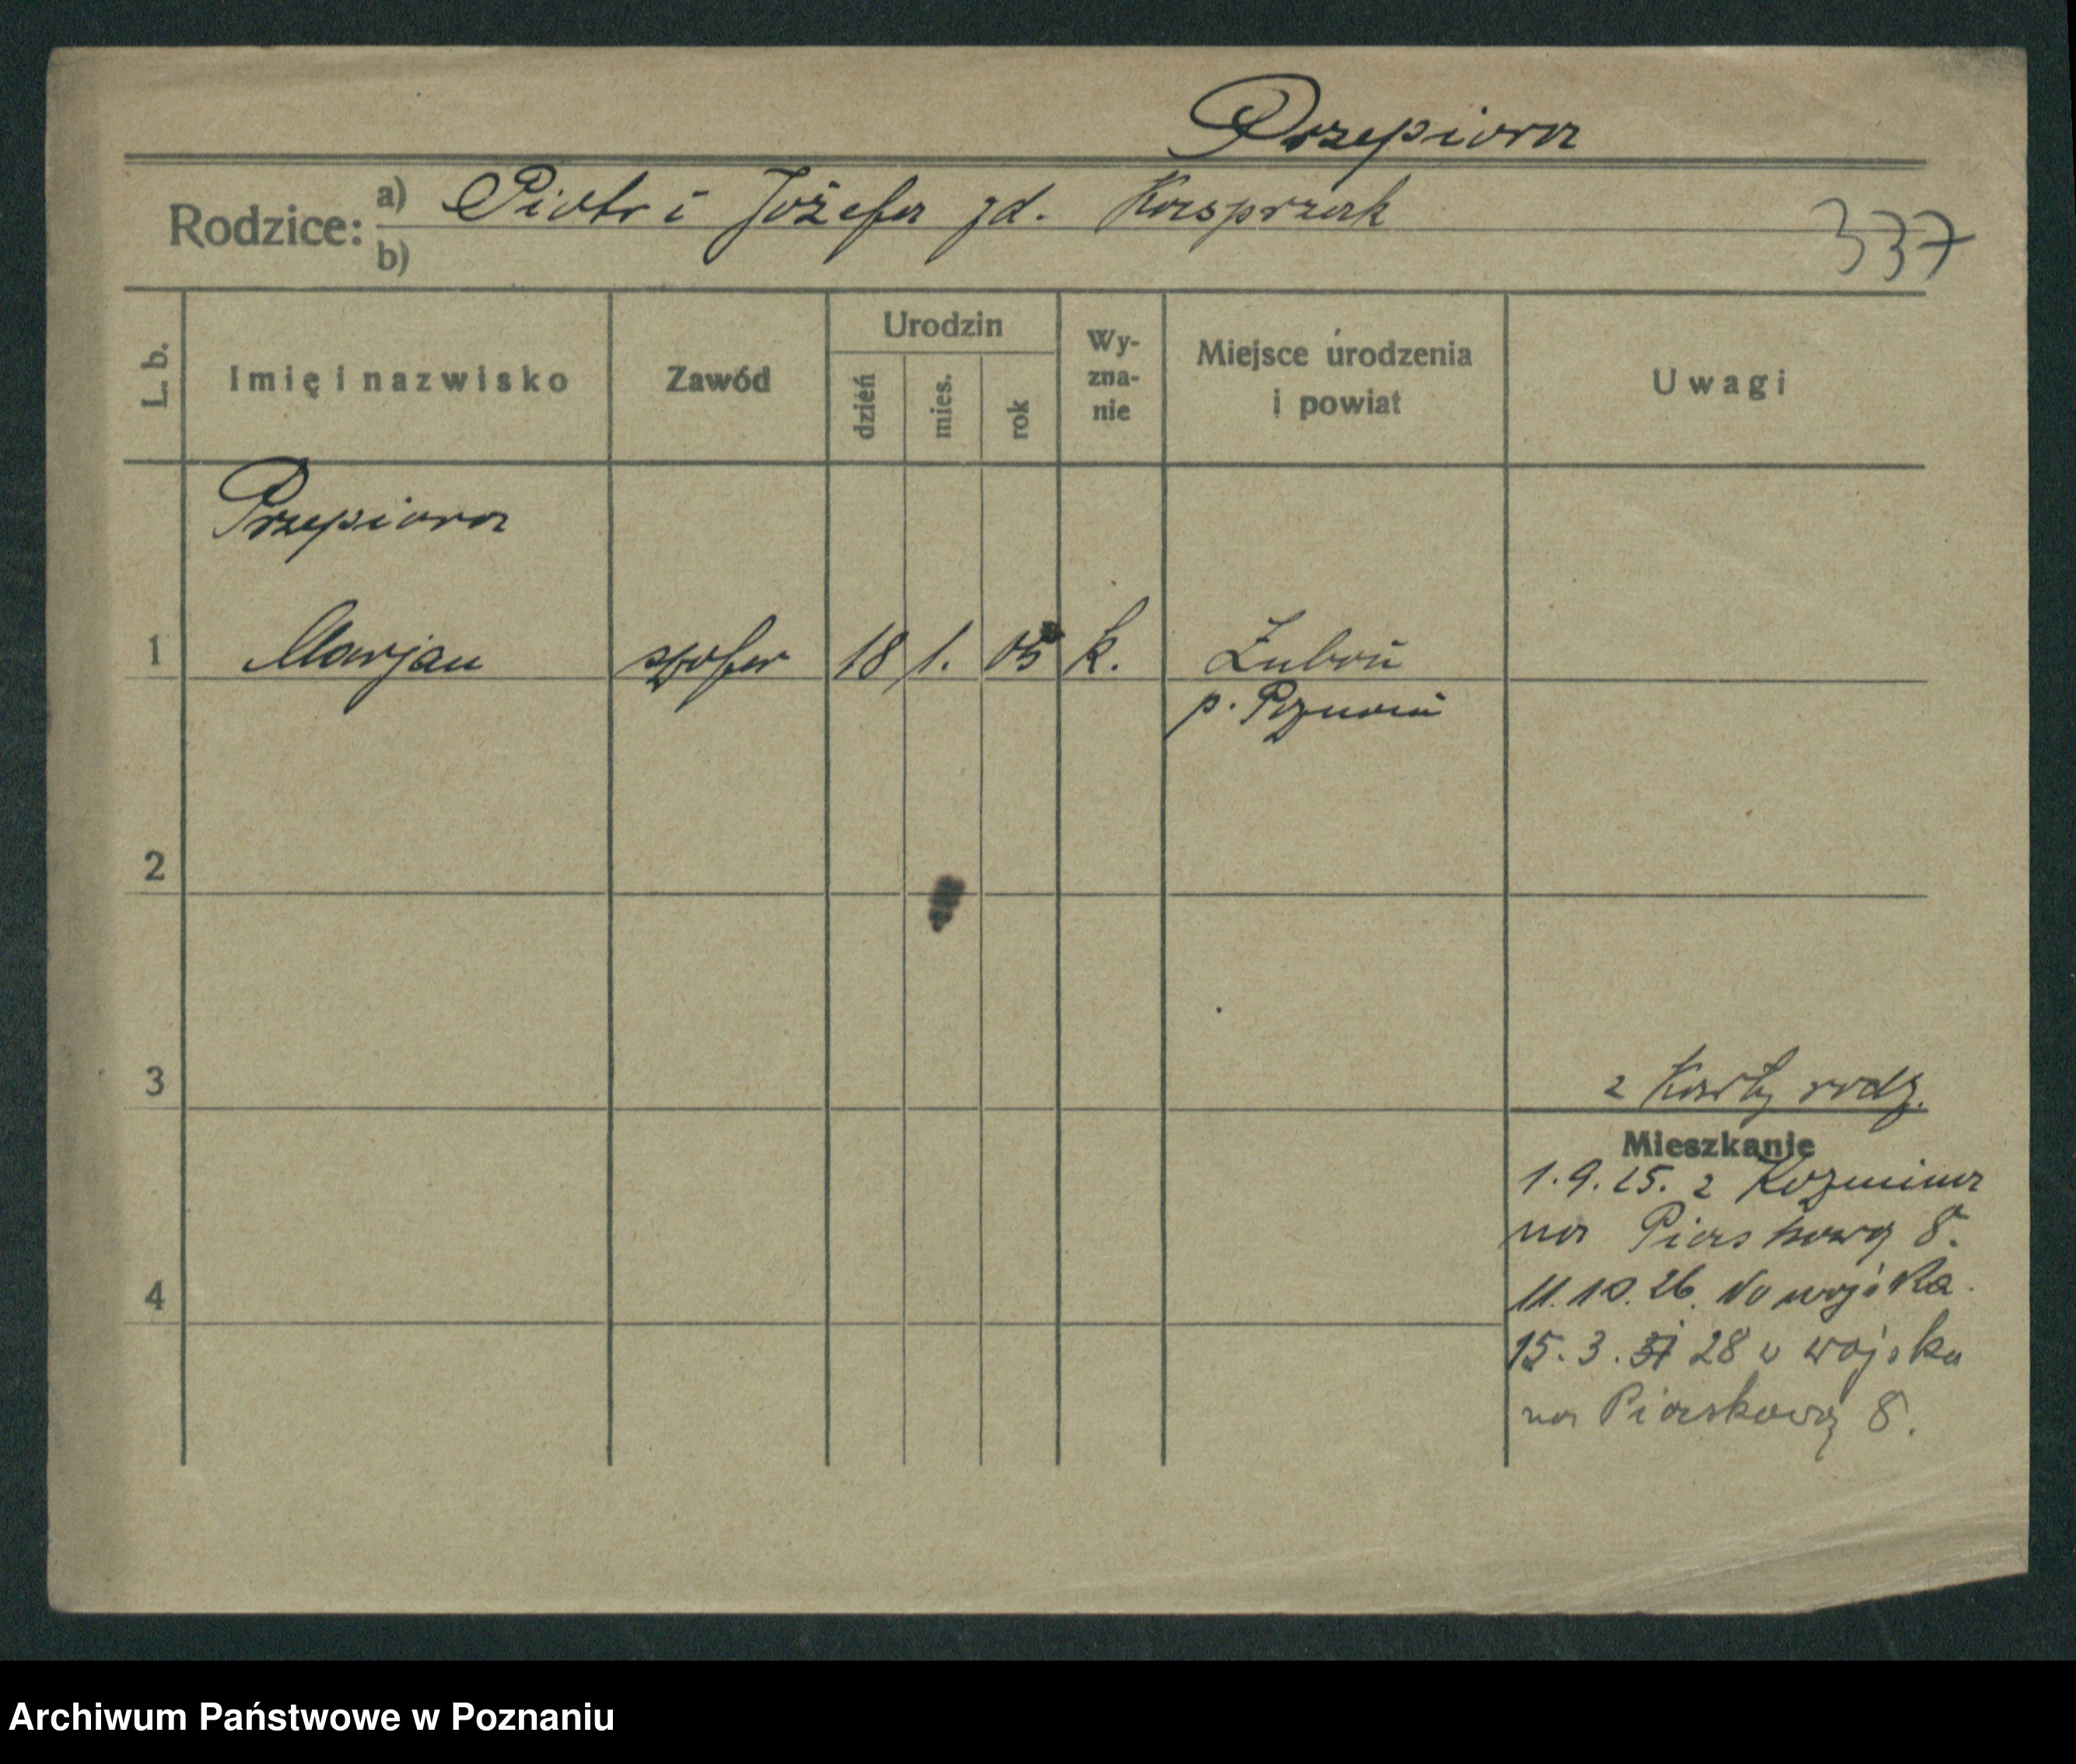 Przepiora
Rodzice: a) Piotr i Józefa zd. Kasprzak
b)
337
L. b. Imię i nazwisko Zawód Urodzin dzień mies. rok Wy-zna-nie Miejsce urodzenia i powiat Uwagi
Przepiora
1 Marjan szofer 18 1. 05 k. Luboń
p. Poznań
2
3
z Karty rodz.
Mieszkanie
1.9.25. z Kozmina
na Piaskową 8.
4
11.10.26. do wojska.
15.3. 28 z wojska
na Piaskową 8.
Archiwum Państwowe w Poznaniu